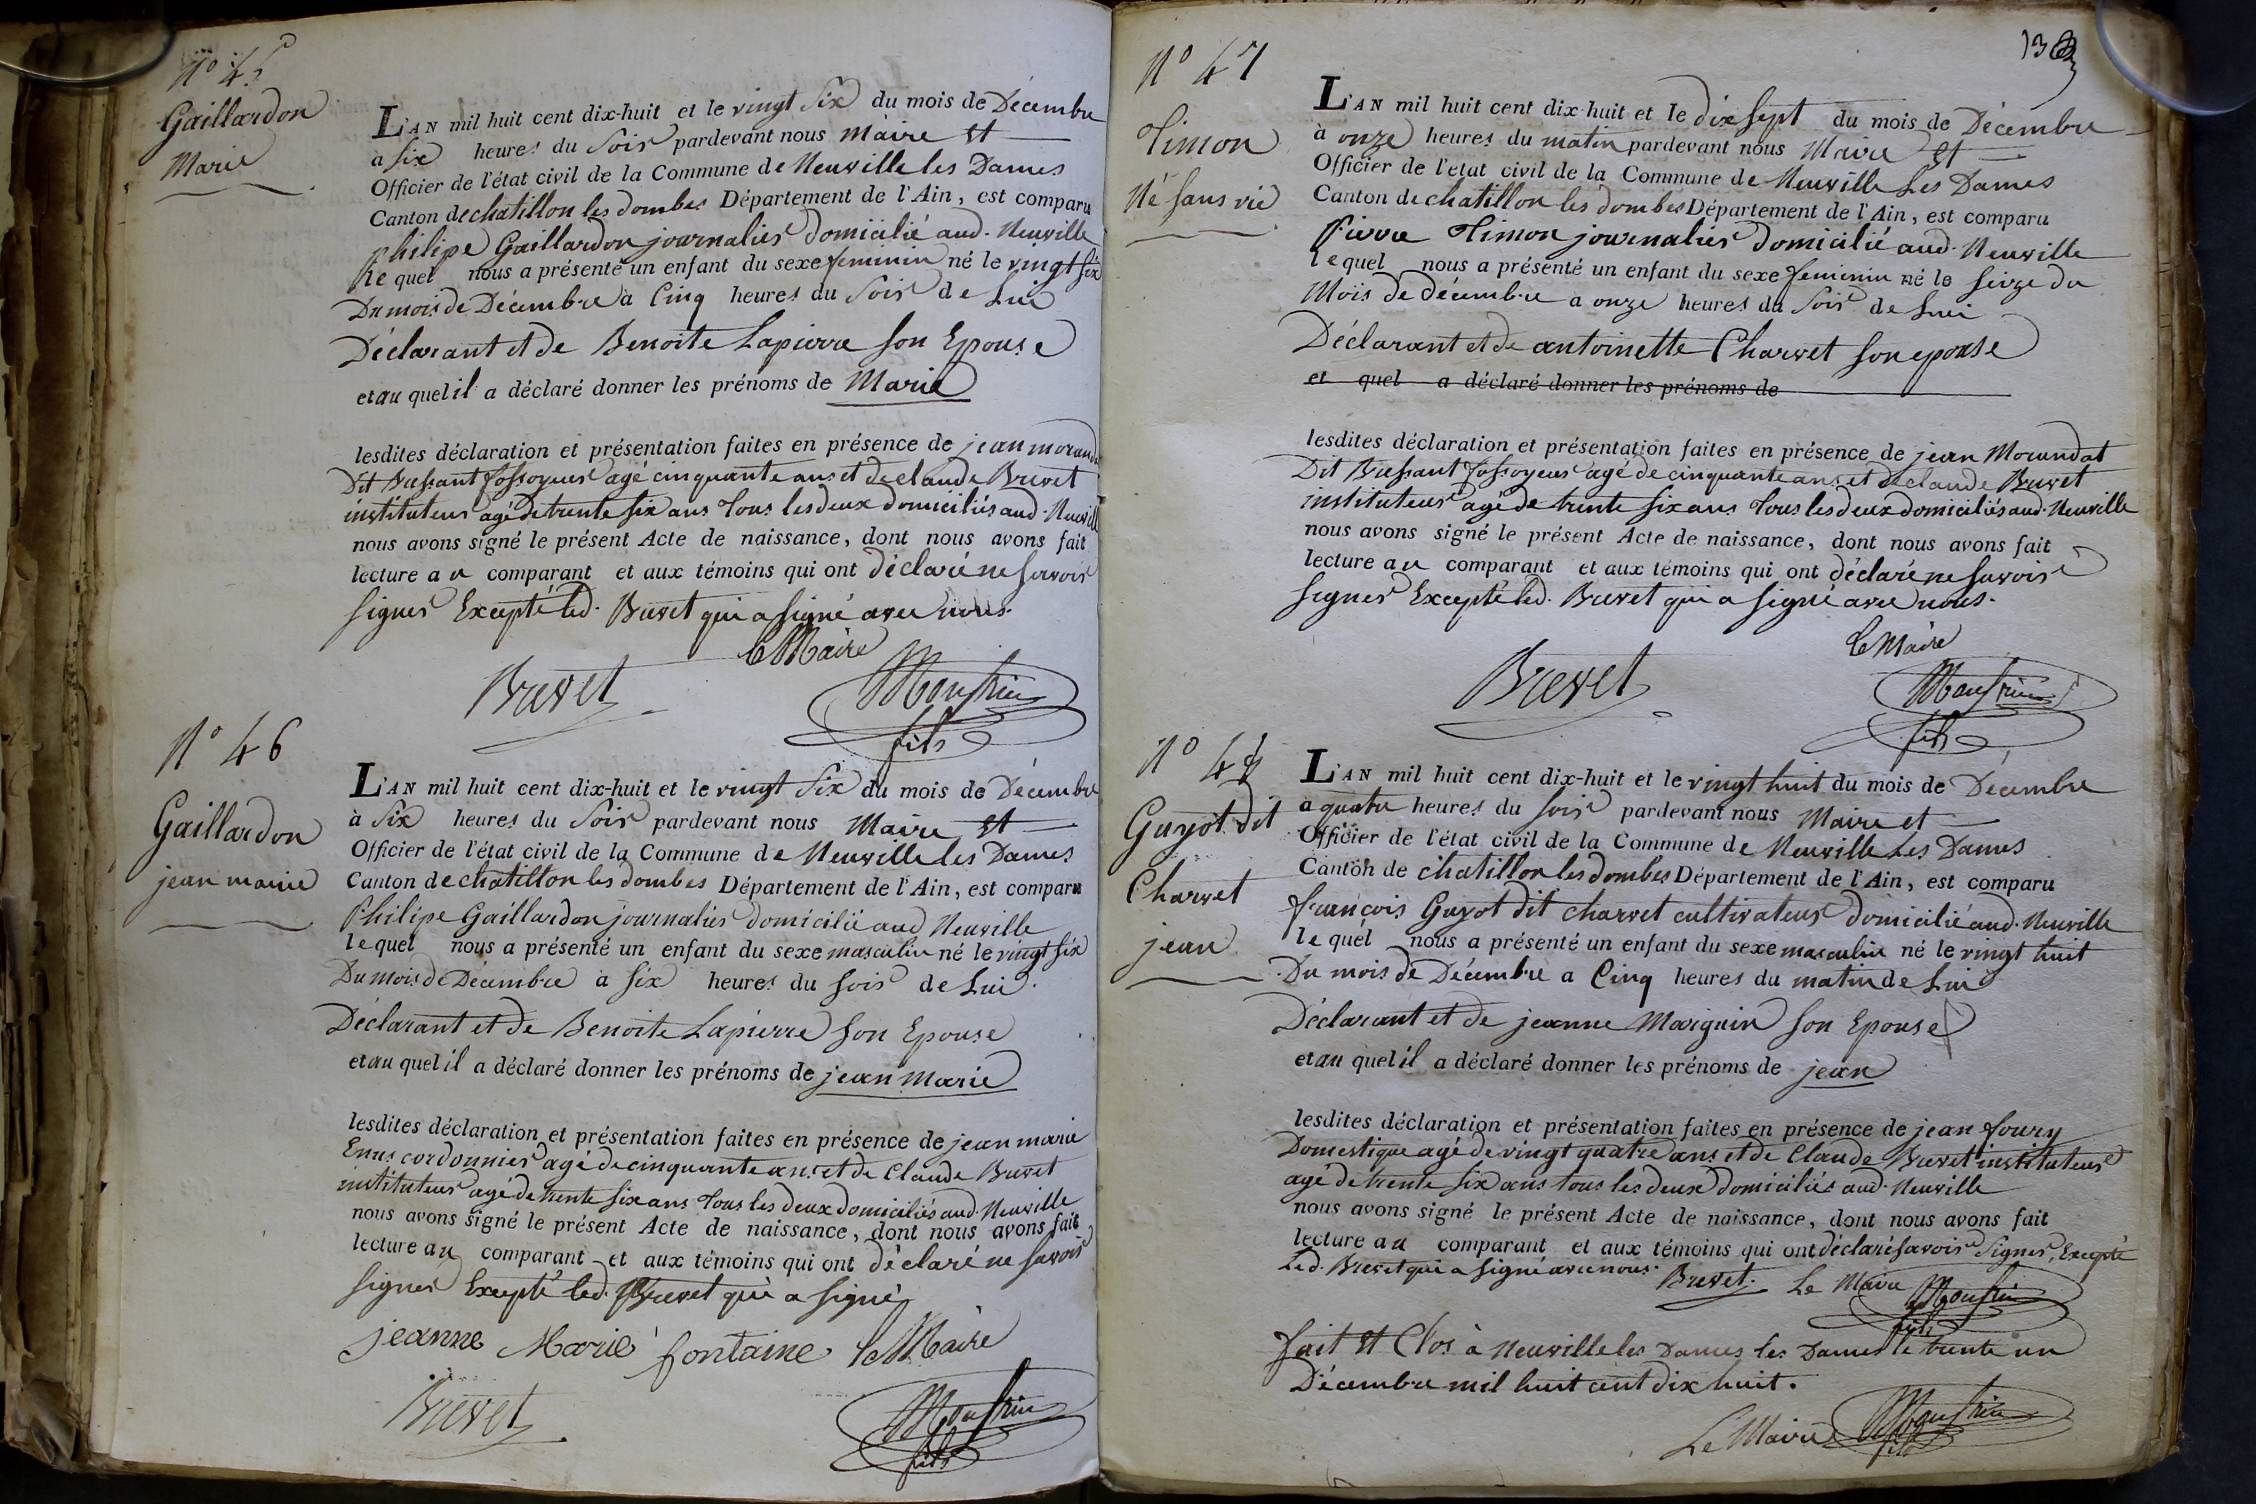 N° 45
Gaillardon
Marie
L'AN mil huit cent dix-huit et le vingt Six du mois de Décembre
à Six heures du Soir pardevant nous maire et
Officier de l'état civil de la Commune de Neuville les Dames
Canton de chatillon les dombes Département de l'Ain, est comparu
philipe Gaillardon journalier domicilié aud. Neuville
le quel nous a présenté un enfant du sexe feminin né le vingt six
Du mois de Décembre à Cinq heures du Soir de Lui
Déclarant et de Benoite Lapierre son Epouse
et au quel il a déclaré donner les prénoms de Marie
lesdites déclaration et présentation faites en présence de jean morandat
Dit Bressant fossoyeur agé cinquante ans et de claude Brevet
instituteur agé de trente six ans tous les deux domiciliés aud. Neuville
nous avons signé le présent Acte de naissance, dont nous avons fait
lecture au comparant et aux témoins qui ont déclaré ne savoir
signer Excepté led. Brevet qui a signé avec nous.
le Maire
Brevet
fils
N° 46
Gaillardon
jean marie
L'AN mil huit cent dix-huit et le vingt Six du mois de Décembre
à Six heures du Soir pardevant nous Maire et
Officier de l'état civil de la Commune de Neuville les Dames
Canton de chatillon les dombes Département de l'Ain, est comparu
Philipe Gaillardon journalier domicilié aud Neuville
le quel nous a présenté un enfant du sexe masculin né le vingt six
Du mois de Décembre à six heures du soir de Lui
Déclarant et de Benoite Lapierre son Epouse
et au quel il a déclaré donner les prénoms de jean Marie
lesdites déclaration et présentation faites en présence de jean marie
cordonnier agé de cinquante ans et de Claude Brevet
instituteur agé de trente six ans tous les deux domiciliés aud. Neuville
nous avons signé le présent Acte de naissance, dont nous avons fait
lecture au comparant et aux témoins qui ont déclaré ne savoir
signer Excepté led. Brevet qui a signé
jeanne Marie fontaine le Maire
Brevet
fils
N° 47
Timon
Né sans vie
L'AN mil huit cent dix-huit et le dix sept du mois de Décembre
à onze heures du matin pardevant nous Maire et
Officier de l'état civil de la Commune de Neuville Les Dames
Canton de chatillon les dombes Département de l'Ain, est comparu
Pierre Timon journalier domicilié aud. Neuville
le quel nous a présenté un enfant du sexe feminin né le seize du
Mois de décembre a onze heures du Soir de Lui
Déclarant et de antoinette Charvet son epouse
et quel a déclaré donner les prénoms de
lesdites déclaration et présentation faites en présence de jean Morandat
Dit Bressant fossoyeur agé de cinquante ans et de claude Brevet
instituteur agé de trente six ans tous les deux domiciliés aud. Neuville
nous avons signé le présent Acte de naissance, dont nous avons fait
lecture au comparant et aux témoins qui ont déclaré ne savoir
signer Excepté led. Brevet qui a signé avec nous.
le Maire
Brevet
fils
N° 48
Guyot dit
Charvet
jean
L'AN mil huit cent dix-huit et le vingt huit du mois de Décembre
a quatre heures du soir pardevant nous Maire et
Officier de l'état civil de la Commune de Neuville Les Dames
Canton de chatillon les dombes Département de l'Ain, est comparu
françois Guyot dit charvet cultivateur domicilié aud. Neuville
le quel nous a présenté un enfant du sexe masculin né le vingt huit
Du mois de Décembre a Cinq heures du matin de Lui
Déclarant et de jeanne Marguin son Epouse
et au quel il a déclaré donner les prénoms de jean
lesdites déclaration et présentation faites en présence de jean foury
Domestique agé de vingt quatre ans et de Claude Brevet instituteur
agé de trente six ans tous les deux domiciliés aud. Neuville
nous avons signé le présent Acte de naissance, dont nous avons fait
lecture au comparant et aux témoins qui ont déclaré savoir signer, Excepté
Led. Brevet qui a signé avec nous.
Brevet. Le Maire
fils
fait et Clos à Neuville les Dames les Dames le trente un
Décembre mil huit cent dix huit.
Le Maire
fils